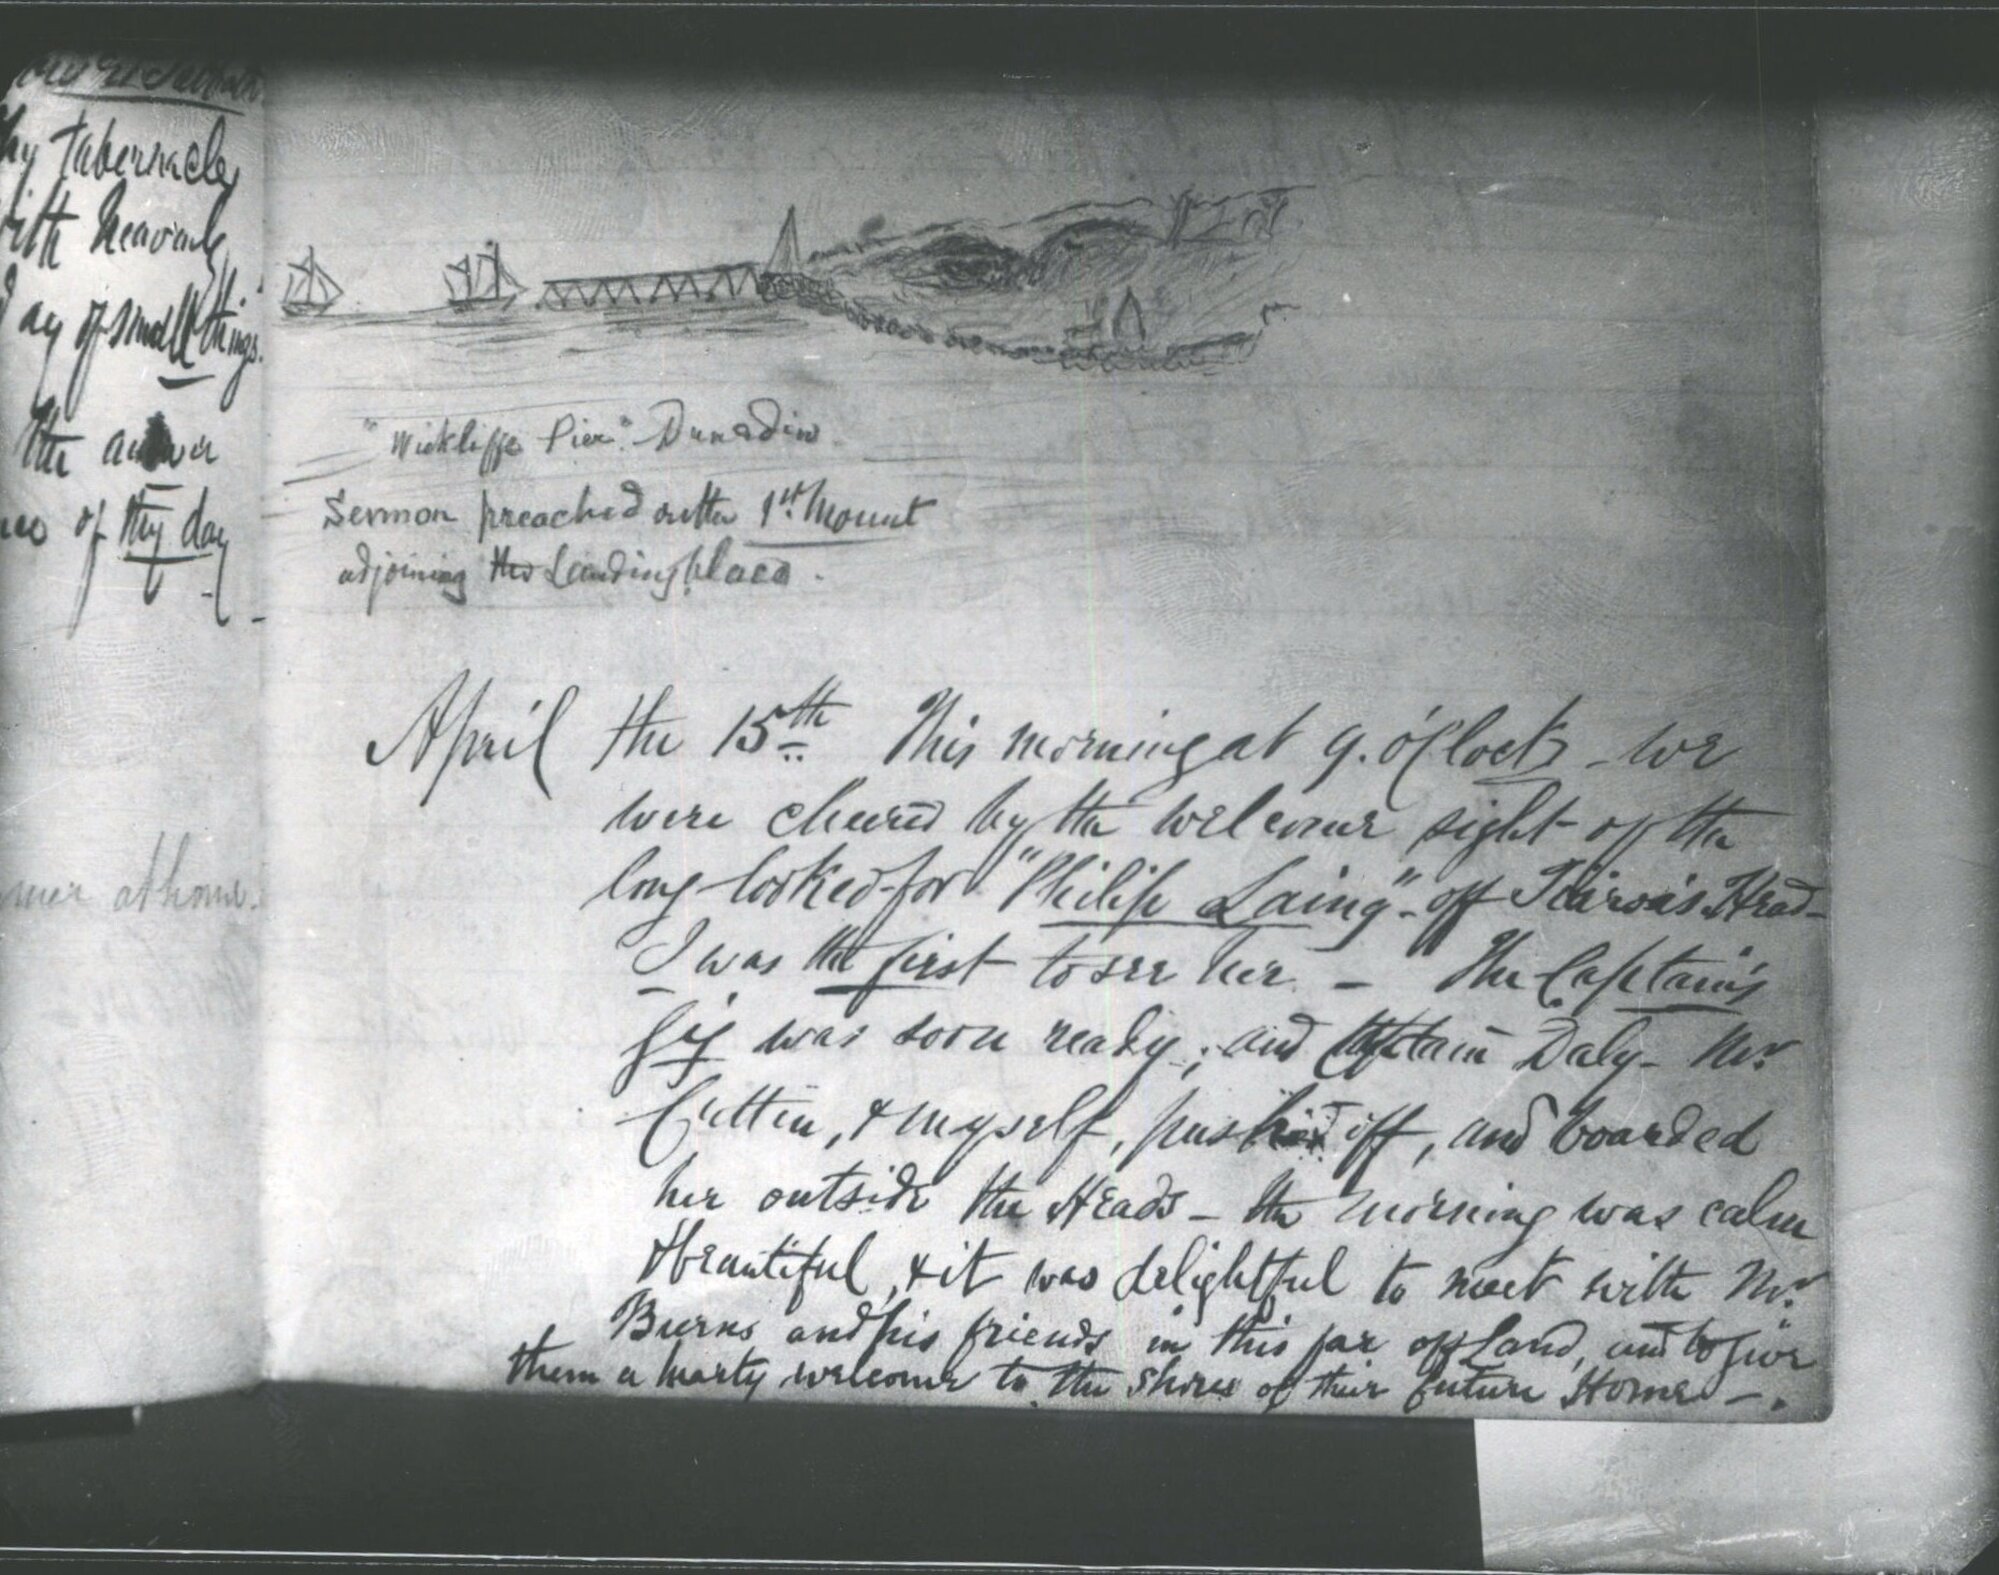 Thy Tabernacle,
with heavenly
Day of small things.
the answer
of thy day
at home.
"Wickliffe Pier" Dunedin
Sermon preached on the 1st Mount
adjoining the Landing place.
April the 15th This morning at 9. o'Clock - we
were cheered by the welcome sight of the
long-looked-for "Philip Laing" - off Head -
I was the first to see her. - The Captain's
gig was soon ready; and Captain Daly - Mr
Cutten, & myself, pushed off, and boarded
her outside the Heads - the morning was calm
& beautiful, & it was delightful to meet with Mr
Burns and his friends in this far off Land, and to give
them a hearty welcome to the shores of their future Home -.